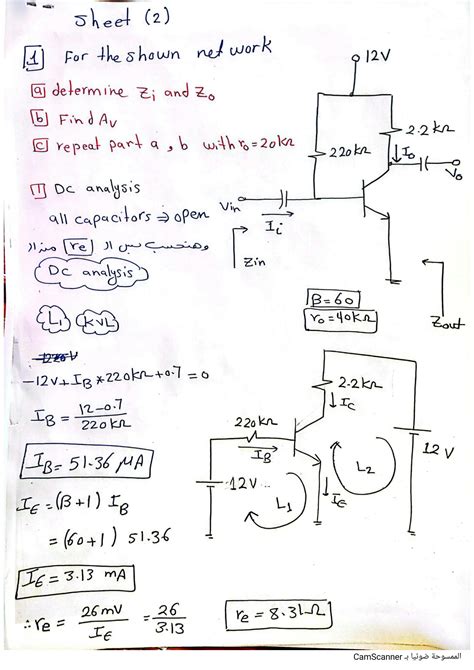 Sheet (2)
1 For the shown network
a determine Zi and Zo
b Find Av
c repeat part a, b with ro = 20kΩ
12V
2.2kΩ
220kΩ
Io
Vo
Vin
Ii
Zin
β = 60
ro = 40kΩ
Zout
1 DC analysis
all capacitors ⇒ open
وهنحسب بس الـ re من الـ
DC analysis
L1 KVL
-12V + IB * 220kΩ + 0.7 = 0
IB = 12-0.7 / 220kΩ
IB = 51.36 μA
IE = (β+1) IB
= (60+1) 51.36
IE = 3.13 mA
∴ re = 26mV / IE = 26 / 3.13
re = 8.31Ω
2.2kΩ
IC
220kΩ
IB
12V
L1
L2
IE
12V
الممسوحة ضوئيا بـ CamScanner